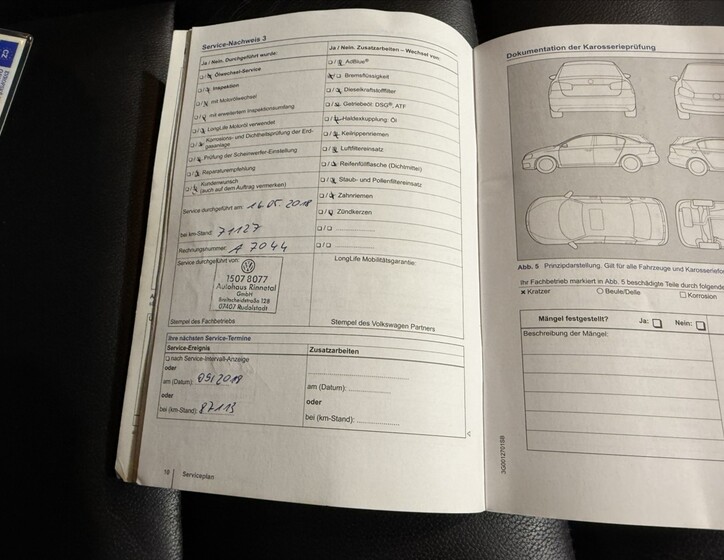 Service-Nachweis 3
Ja / Nein. Durchgeführt wurde:
Ölwechsel-Service
Inspektion
mit Motorölwechsel
mit erweitertem Inspektionsumfang
LongLife Motoröl verwendet
Korrosions- und Dichtheitsprüfung der Erdgasanlage
Prüfung der Scheinwerfer-Einstellung
Reparaturempfehlung
Kundenwunsch
(auch auf dem Auftrag vermerken)
Service durchgeführt am: 16.05.2018
bei km-Stand: 71127
Rechnungsnummer: A 7044
Service durchgeführt von:
1507 8077
Autohaus Rinnetal
GmbH
Breitscheidstraße 128
07407 Rudolstadt
Stempel des Fachbetriebs
Ja / Nein. Zusatzarbeiten – Wechsel von:
AdBlue®
Bremsflüssigkeit
Dieselkraftstofffilter
Getriebeöl: DSG®, ATF
Haldexkupplung: Öl
Keilrippenriemen
Luftfiltereinsatz
Reifenfüllflasche (Dichtmittel)
Staub- und Pollenfiltereinsatz
Zahnriemen
Zündkerzen
LongLife Mobilitätsgarantie:
Stempel des Volkswagen Partners
Ihre nächsten Service-Termine
Service-Ereignis
nach Service-Intervall-Anzeige
oder
am (Datum):
oder
bei (km-Stand):
Zusatzarbeiten
am (Datum):
oder
bei (km-Stand):
18 Serviceplan
Dokumentation der Karosserieprüfung
Abb. 5 Prinzipdarstellung. Gilt für alle Fahrzeuge und
Ihr Fachbetrieb markiert in Abb. 5 beschädigte Teile durch
× Kratzer ○ Beule/Delle □ Korrosion
Mängel festgestellt? Ja: □ Nein: □
Beschreibung der Mängel: